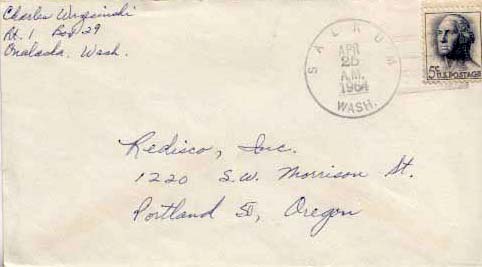 Charles
Rt. 1, Box 29
Onalaska, Wash.
SALKUM
APR
25
A.M.
1964
WASH.
5¢ U.S. POSTAGE
Redisco, Inc.
1220 S.W. Morrison St.
Portland 5, Oregon